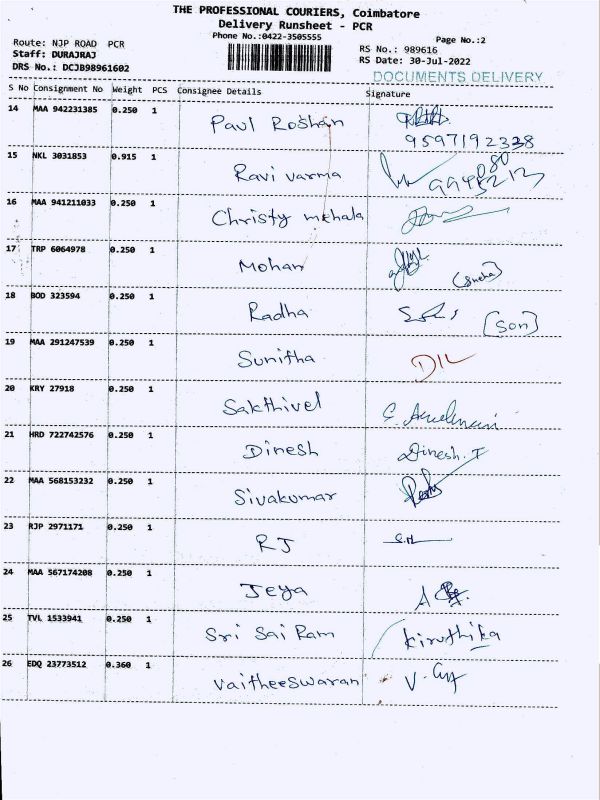 THE PROFESSIONAL COURIERS, Coimbatore
Delivery Runsheet - PCR
Phone No.:0422-3505555
Page No.:2
Route: NJP ROAD PCR
Staff: DURAJRAJ
DRS No.: DCJB98961602
RS No.: 989616
RS Date: 30-Jul-2022
DOCUMENTS DELIVERY
S No Consignment No Weight PCS Consignee Details Signature
14 MAA 942231385 0.250 1 Paul Roshan
9597192338
15 NKL 3031853 0.915 1 Ravi varma
16 MAA 941211033 0.250 1 Christy mehala
17 TRP 6064978 0.250 1 Mohan
(Sneha)
18 BOD 323594 0.250 1 Radha
(Son)
19 MAA 291247539 0.250 1 Sunitha DIL
20 KRY 27918 0.250 1 Sakthivel
21 HRD 722742576 0.250 1 Dinesh Dinesh.T
22 MAA 568153232 0.250 1 Sivakumar
23 RJP 2971171 0.250 1 RJ
24 MAA 567174208 0.250 1 Jeya
25 TVL 1533941 0.250 1 Sri Sai Ram Kiruthika
26 EDQ 23773512 0.360 1 Vaitheeswaran